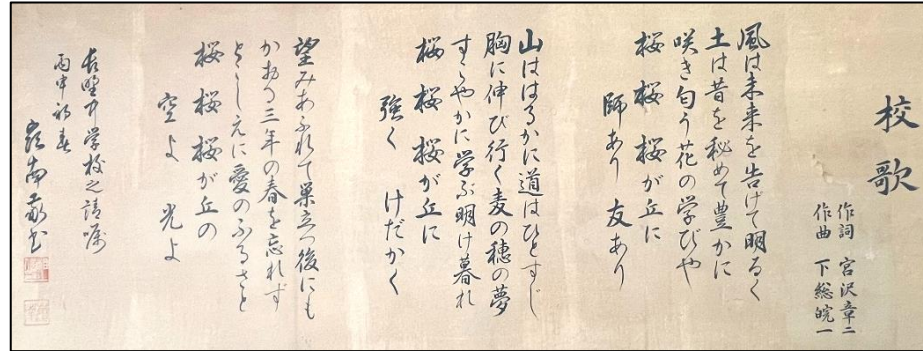 校歌
作詞 宮沢章二
作曲 下総皖一
風は未来を告げて明るく
土は昔を秘めて豊かに
咲き匂う花の学びや
桜 桜 桜が丘に
師あり 友あり
山ははるかに道はひとすじ
胸に伸び行く麦の穂の夢
すこやかに学ぶ明け暮れ
桜 桜 桜が丘に
強く けだかく
望みあふれて巣立つ後にも
かおる三年の春を忘れず
とこしえに愛のふるさと
桜 桜 桜が丘の
空よ 光よ
中学校之請嘱
丙申初春